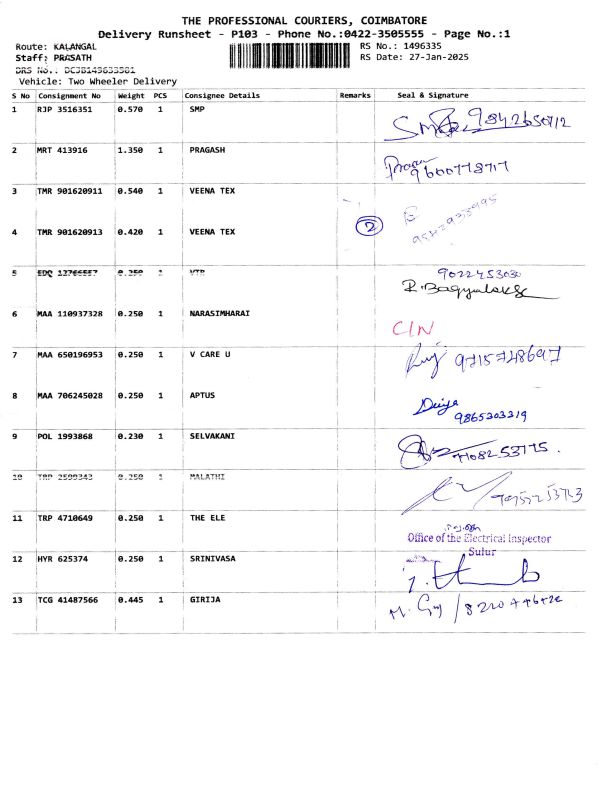 THE PROFESSIONAL COURIERS, COIMBATORE
Delivery Runsheet - P103 - Phone No.:0422-3505555 - Page No.:1
Route: KALANGAL RS No.: 1496335
Staff: PRASATH RS Date: 27-Jan-2025
DRS No.:
Vehicle: Two Wheeler Delivery
S No Consignment No Weight PCS Consignee Details Remarks Seal & Signature
1 RJP 3516351 0.570 1 SMP
2 MRT 413916 1.350 1 PRAGASH
3 TMR 901620911 0.540 1 VEENA TEX
4 TMR 901620913 0.420 1 VEENA TEX 2
5 EDQ 12766557 0.250 1 VTP 9022453030
6 MAA 110937328 0.250 1 NARASIMHARAI C/N
7 MAA 650196953 0.250 1 V CARE U
8 MAA 706245028 0.250 1 APTUS 9865303319
9 POL 1993868 0.230 1 SELVAKANI
10 TRP 2599343 0.250 1 MALATHI
11 TRP 4710649 0.250 1 THE ELE Office of the Electrical Inspector
Sulur
12 HYR 625374 0.250 1 SRINIVASA
13 TCG 41487566 0.445 1 GIRIJA